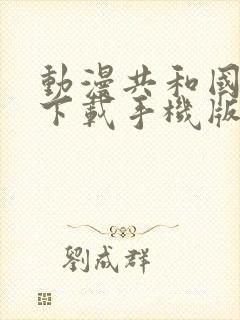 動漫共和國
下載手機版
劉成群